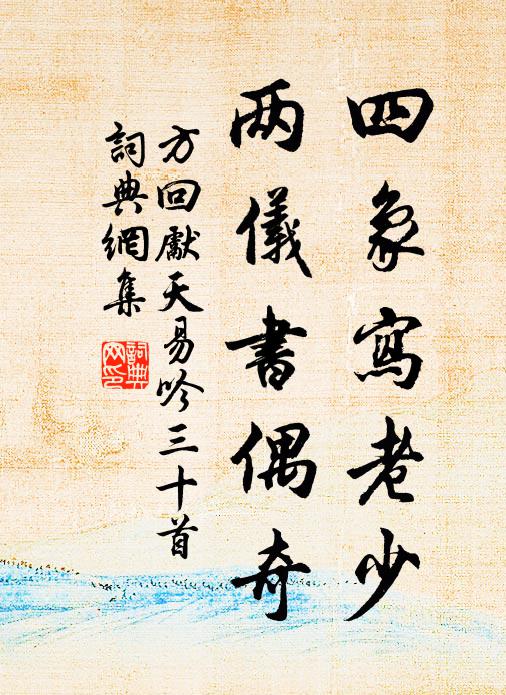 四象寫老少
两儀書偶奇
方回獻天易吟三十首
詞典網集
詞典网印